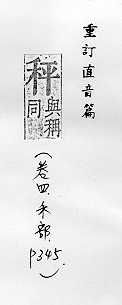 重訂直音篇
秤
與稱
同
(卷四.禾部.
P345.)